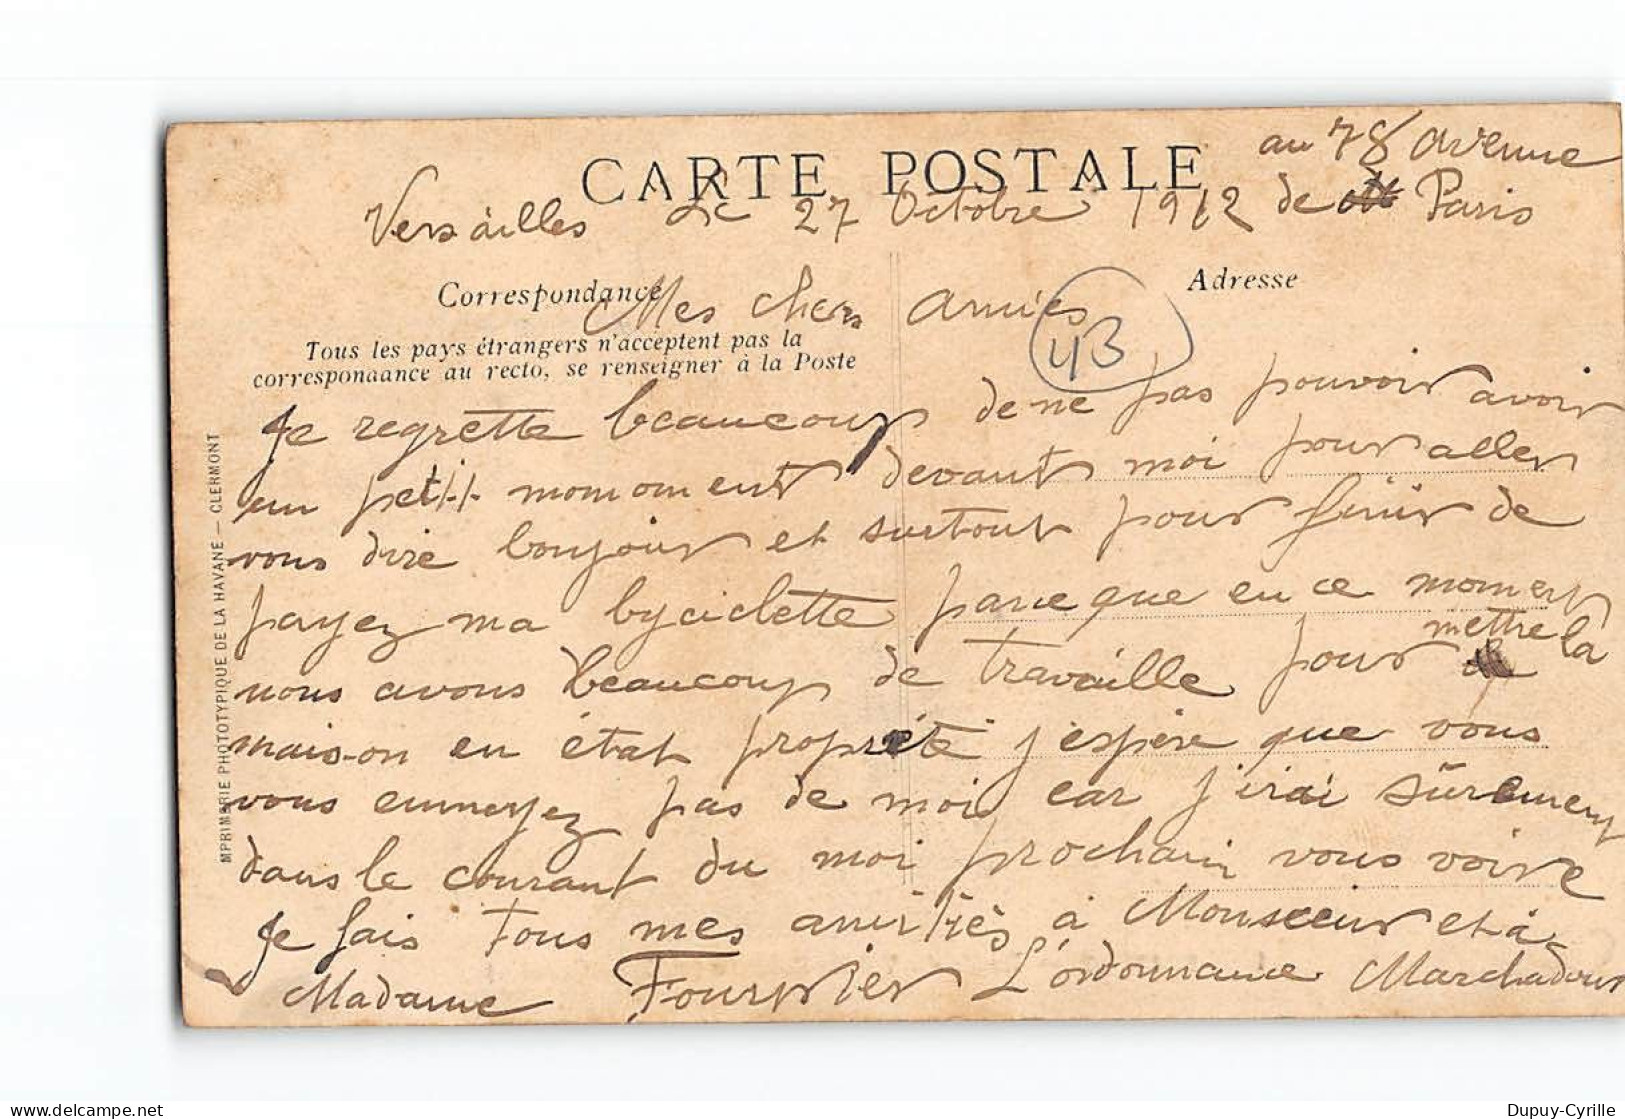 CARTE POSTALE
au 78 avenue
Versailles Le 27 Octobre 1912 de Paris
Correspondance
Adresse
Mes chers amies
43
Tous les pays étrangers n'acceptent pas la
correspondance au recto, se renseigner à la Poste
Je regrette beaucoup de ne pas pouvoir avoir
un petit momoment devant moi pour aller
vous dire bonjour et surtout pour finir de
payez ma byciclette parceque en ce moment
nous avons beaucoup de travaille pour mettre la
maison en état propriété j'espère que vous
vous ennuyez pas de moi car j'irai sûrement
dans le courant du moi prochain vous voire
Je fais tous mes amitiés à Monsieur et à
Madame Fournier L'ordonnance Marchadour
IMPRIMERIE PHOTOTYPIQUE DE LA HAVANE — CLERMONT
Dupuy-Cyrille
delcampe.net